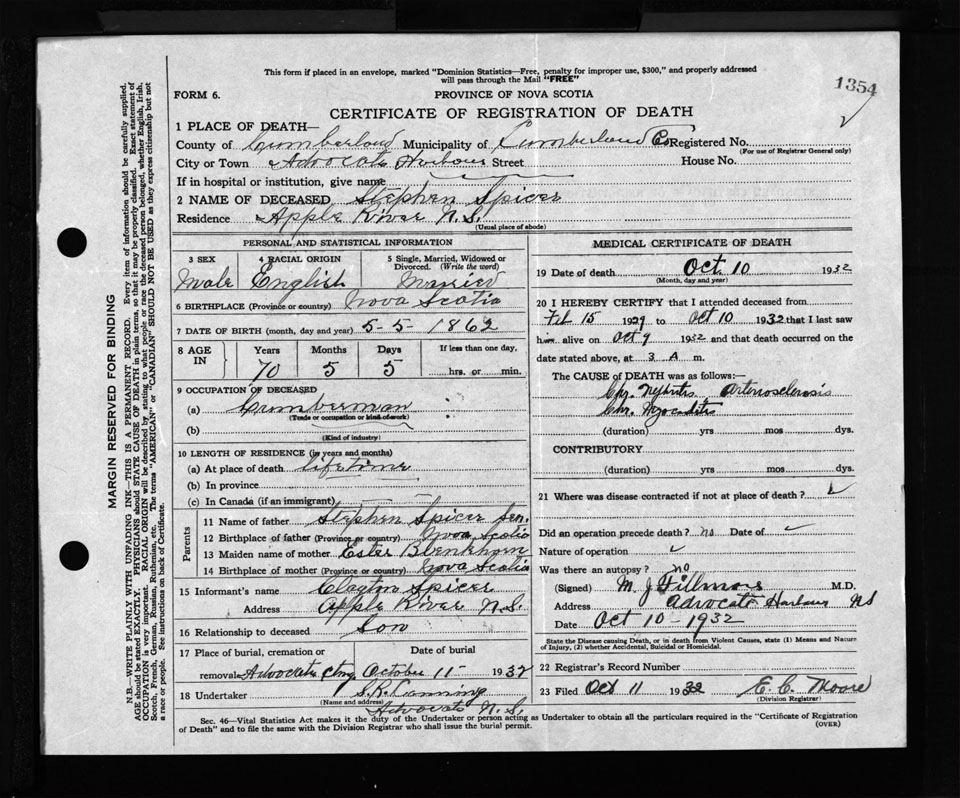 This form if placed in an envelope, marked "Dominion Statistics—Free, penalty for improper use, $300," and properly addressed
will pass through the Mail "FREE"
1354
FORM 6.
PROVINCE OF NOVA SCOTIA
CERTIFICATE OF REGISTRATION OF DEATH
1 PLACE OF DEATH—
County of Cumberland Municipality of Cumberland Co Registered No.
(For use of Registrar General only)
City or Town Advocate Harbour Street House No.
If in hospital or institution, give name
2 NAME OF DECEASED Stephen Spicer
Residence Apple River N.S.
(Usual place of abode)
PERSONAL AND STATISTICAL INFORMATION
3 SEX 4 RACIAL ORIGIN 5 Single, Married, Widowed or Divorced. (Write the word)
Male English Married
6 BIRTHPLACE (Province or country) Nova Scotia
7 DATE OF BIRTH (month, day and year) 5-5-1862
8 AGE IN Years Months Days If less than one day,
70 5 5 hrs. or min.
9 OCCUPATION OF DECEASED
(a)
(Trade or occupation or kind of work)
(b)
(Kind of industry)
10 LENGTH OF RESIDENCE (in years and months)
(a) At place of death lifetime
(b) In province
(c) In Canada (if an immigrant)
Parents
11 Name of father Stephen Spicer Sen.
12 Birthplace of father (Province or country) Nova Scotia
13 Maiden name of mother Ester Blenkhorn
14 Birthplace of mother (Province or country) Nova Scotia
15 Informant's name Clayton Spicer
Address Apple River N.S.
16 Relationship to deceased Son
17 Place of burial, cremation or removal Date of burial
Advocate Cty October 11 - 1932
18 Undertaker S.K. Canning
(Name and address) Advocate N.S.
MEDICAL CERTIFICATE OF DEATH
19 Date of death Oct. 10 1932
(Month, day and year)
20 I HEREBY CERTIFY that I attended deceased from
Feb 15 1929 to Oct 10 1932 that I last saw
him alive on Oct 9 1932 and that death occurred on the
date stated above, at 3 A m.
The CAUSE of DEATH was as follows:—
Chr. Nephritis Arteriosclerosis
Chr. Myocarditis
(duration) yrs mos dys.
CONTRIBUTORY
(duration) yrs mos dys.
21 Where was disease contracted if not at place of death?
Did an operation precede death? no Date of
Nature of operation
Was there an autopsy? no
(Signed) M. J. Fillmore M.D.
Address Advocate Harbour NS
Date Oct 10-1932
State the Disease causing Death, or in death from Violent Causes, state (1) Means and Nature
of Injury, (2) whether Accidental, Suicidal or Homicidal.
22 Registrar's Record Number
23 Filed Oct 11 1932 E. C. Moore
(Division Registrar)
Sec. 46—Vital Statistics Act makes it the duty of the Undertaker or person acting as Undertaker to obtain all the particulars required in the "Certificate of Registration
of Death" and to file the same with the Division Registrar who shall issue the burial permit.
(OVER)
MARGIN RESERVED FOR BINDING
N.B.—WRITE PLAINLY WITH UNFADING INK—THIS IS A PERMANENT RECORD. Every item of information should be carefully supplied.
AGE should be stated EXACTLY. PHYSICIANS should STATE CAUSE OF DEATH in plain terms, so that it may be properly classified. Exact statement of
OCCUPATION is very important. RACIAL ORIGIN will be described by stating to what people or race the deceased person belonged, whether English, Irish,
Scotch, French, German, Russian, Ruthenian, etc. The terms "AMERICAN" or "CANADIAN" SHOULD NOT BE USED as they express citizenship but not
a race or people. See instructions on back of Certificate.